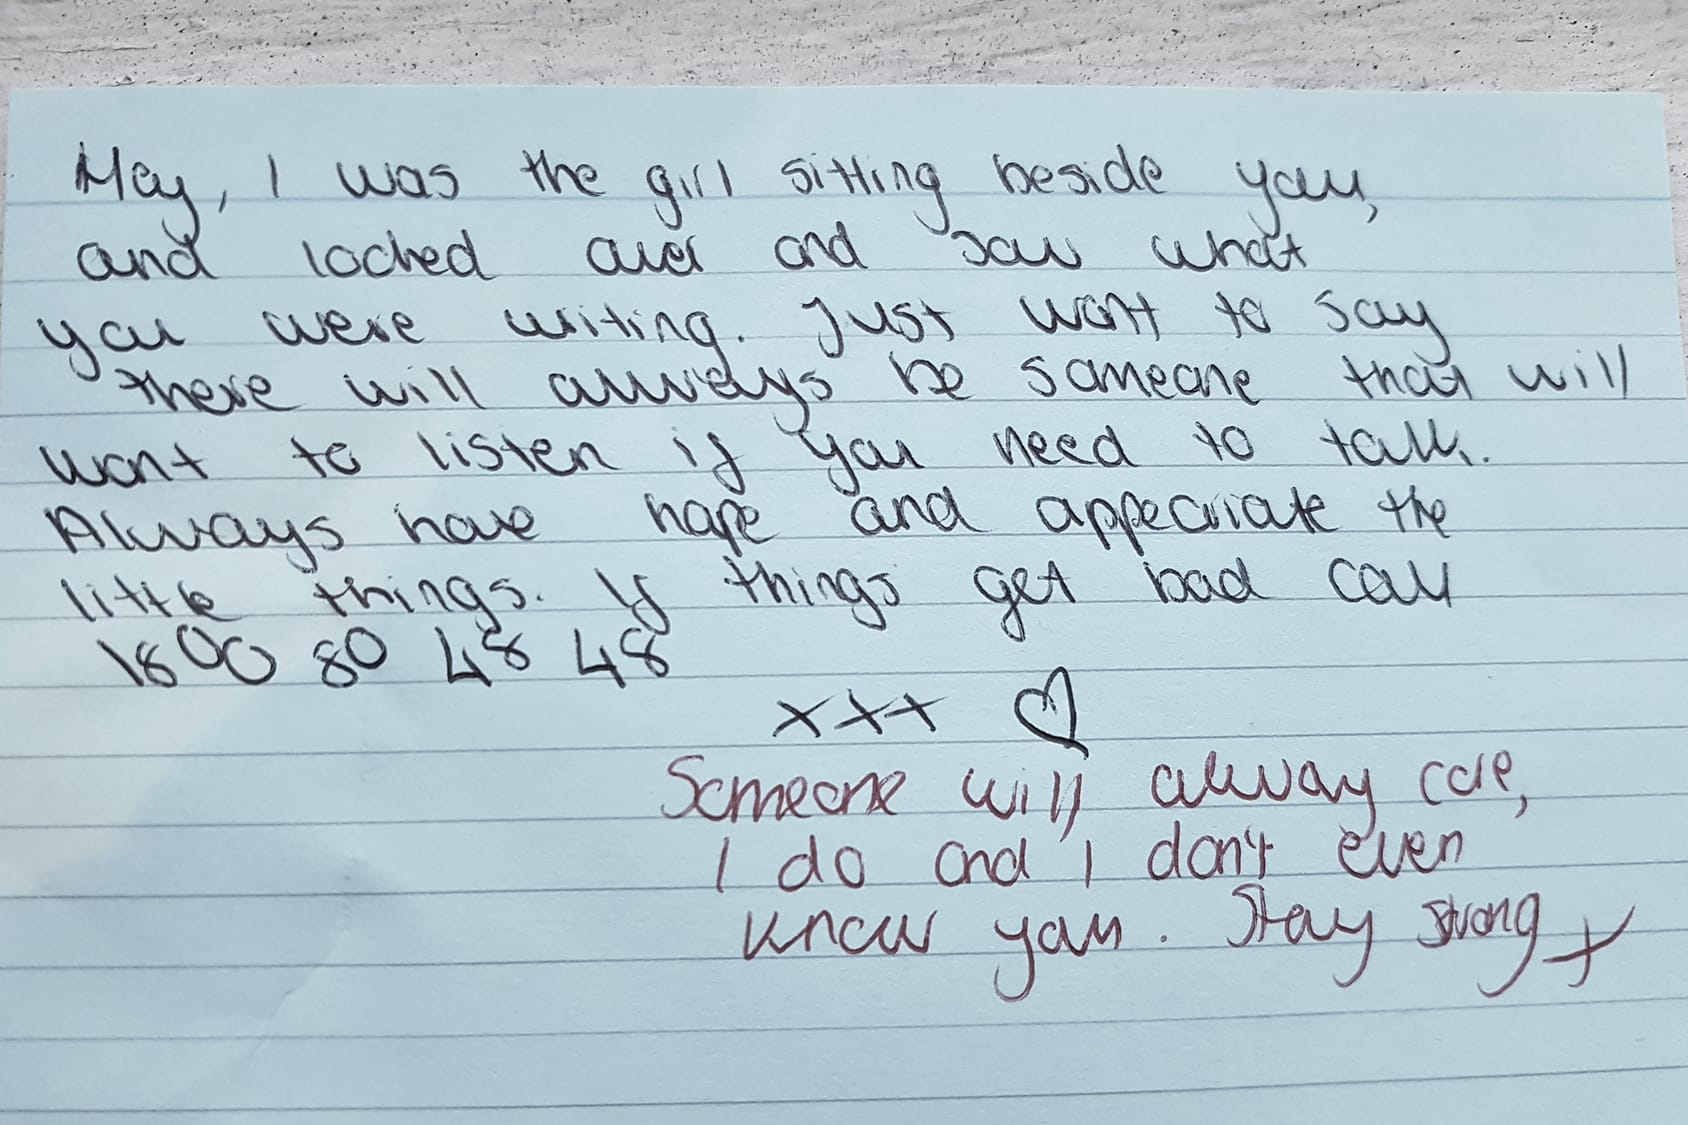 Hey, I was the girl sitting beside you,
and looked over and saw what
you were writing. Just want to say
there will always be someone that will
want to listen if you need to talk.
Always have hope and appeciriate the
little things. If things get bad call
1800 80 48 48
xxx ♡
Someone will alway care,
I do and I don't even
know you. Stay strong x